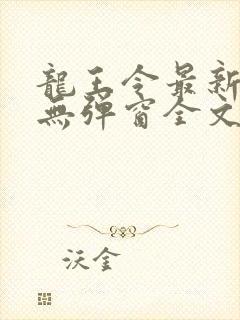 龍王令最新
無彈窗全文
沃金